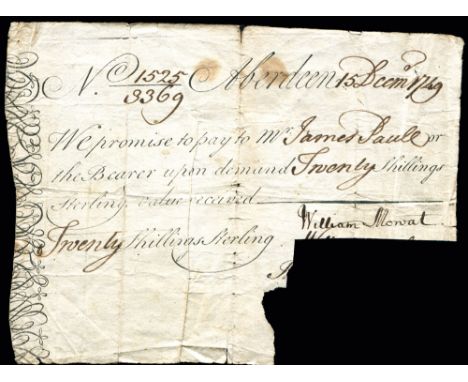 No. 1525/3369 Aberdeen 15 Decemr. 1749
We promise to pay to Mr. James Paull or
the Bearer upon demand Twenty Shillings
Sterling value received
William Mowat
Twenty Shillings Sterling